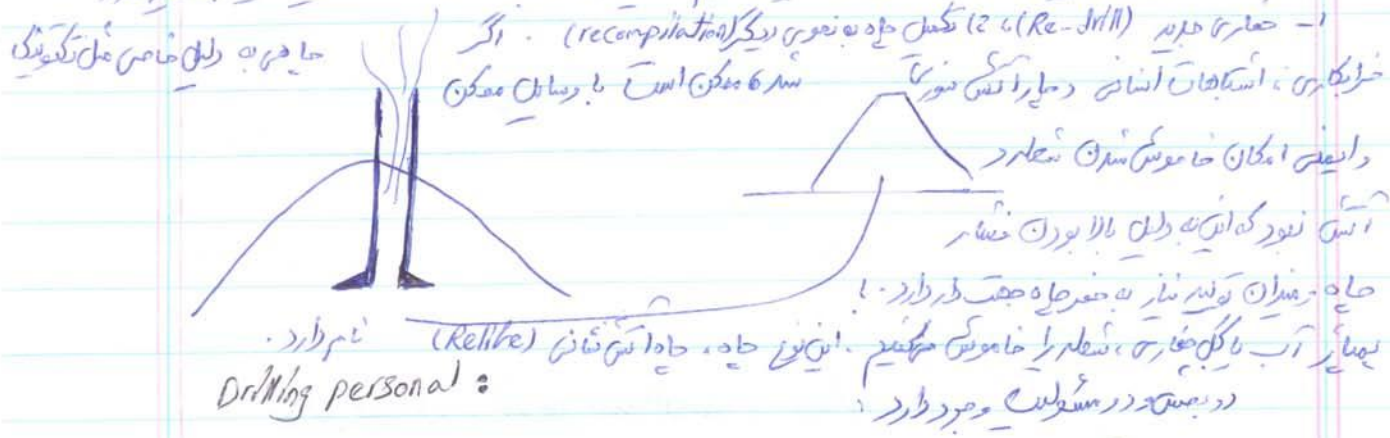 ۱- حفاری جدید (Re-drill)، 2) تکمیل چاه به نحوی دیگر (recompilation). اگر چاهی به دلیل خاصی مثل تکنونیک
خرابکاری، اشتباهات انسانی دچار آتش سوزی شد، ممکن است با وسایل ممکن
و ایمنی امکان خاموش شدن شعله
آتش نبود که این به دلیل بالا بودن فشار
چاه و میزان تولید نیاز به حفر چاه جهت دار دارد. با
پمپاژ آب یا گل حفاری، شعله را خاموش میکنیم. این نوع چاه، چاه آتش نشانی (Relife) نام دارد.
Drilling personal :
دو بخش و در مسئولیت وجود دارد :